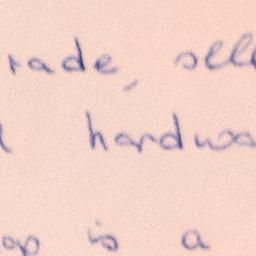 rade, sell
hardwa
op is a